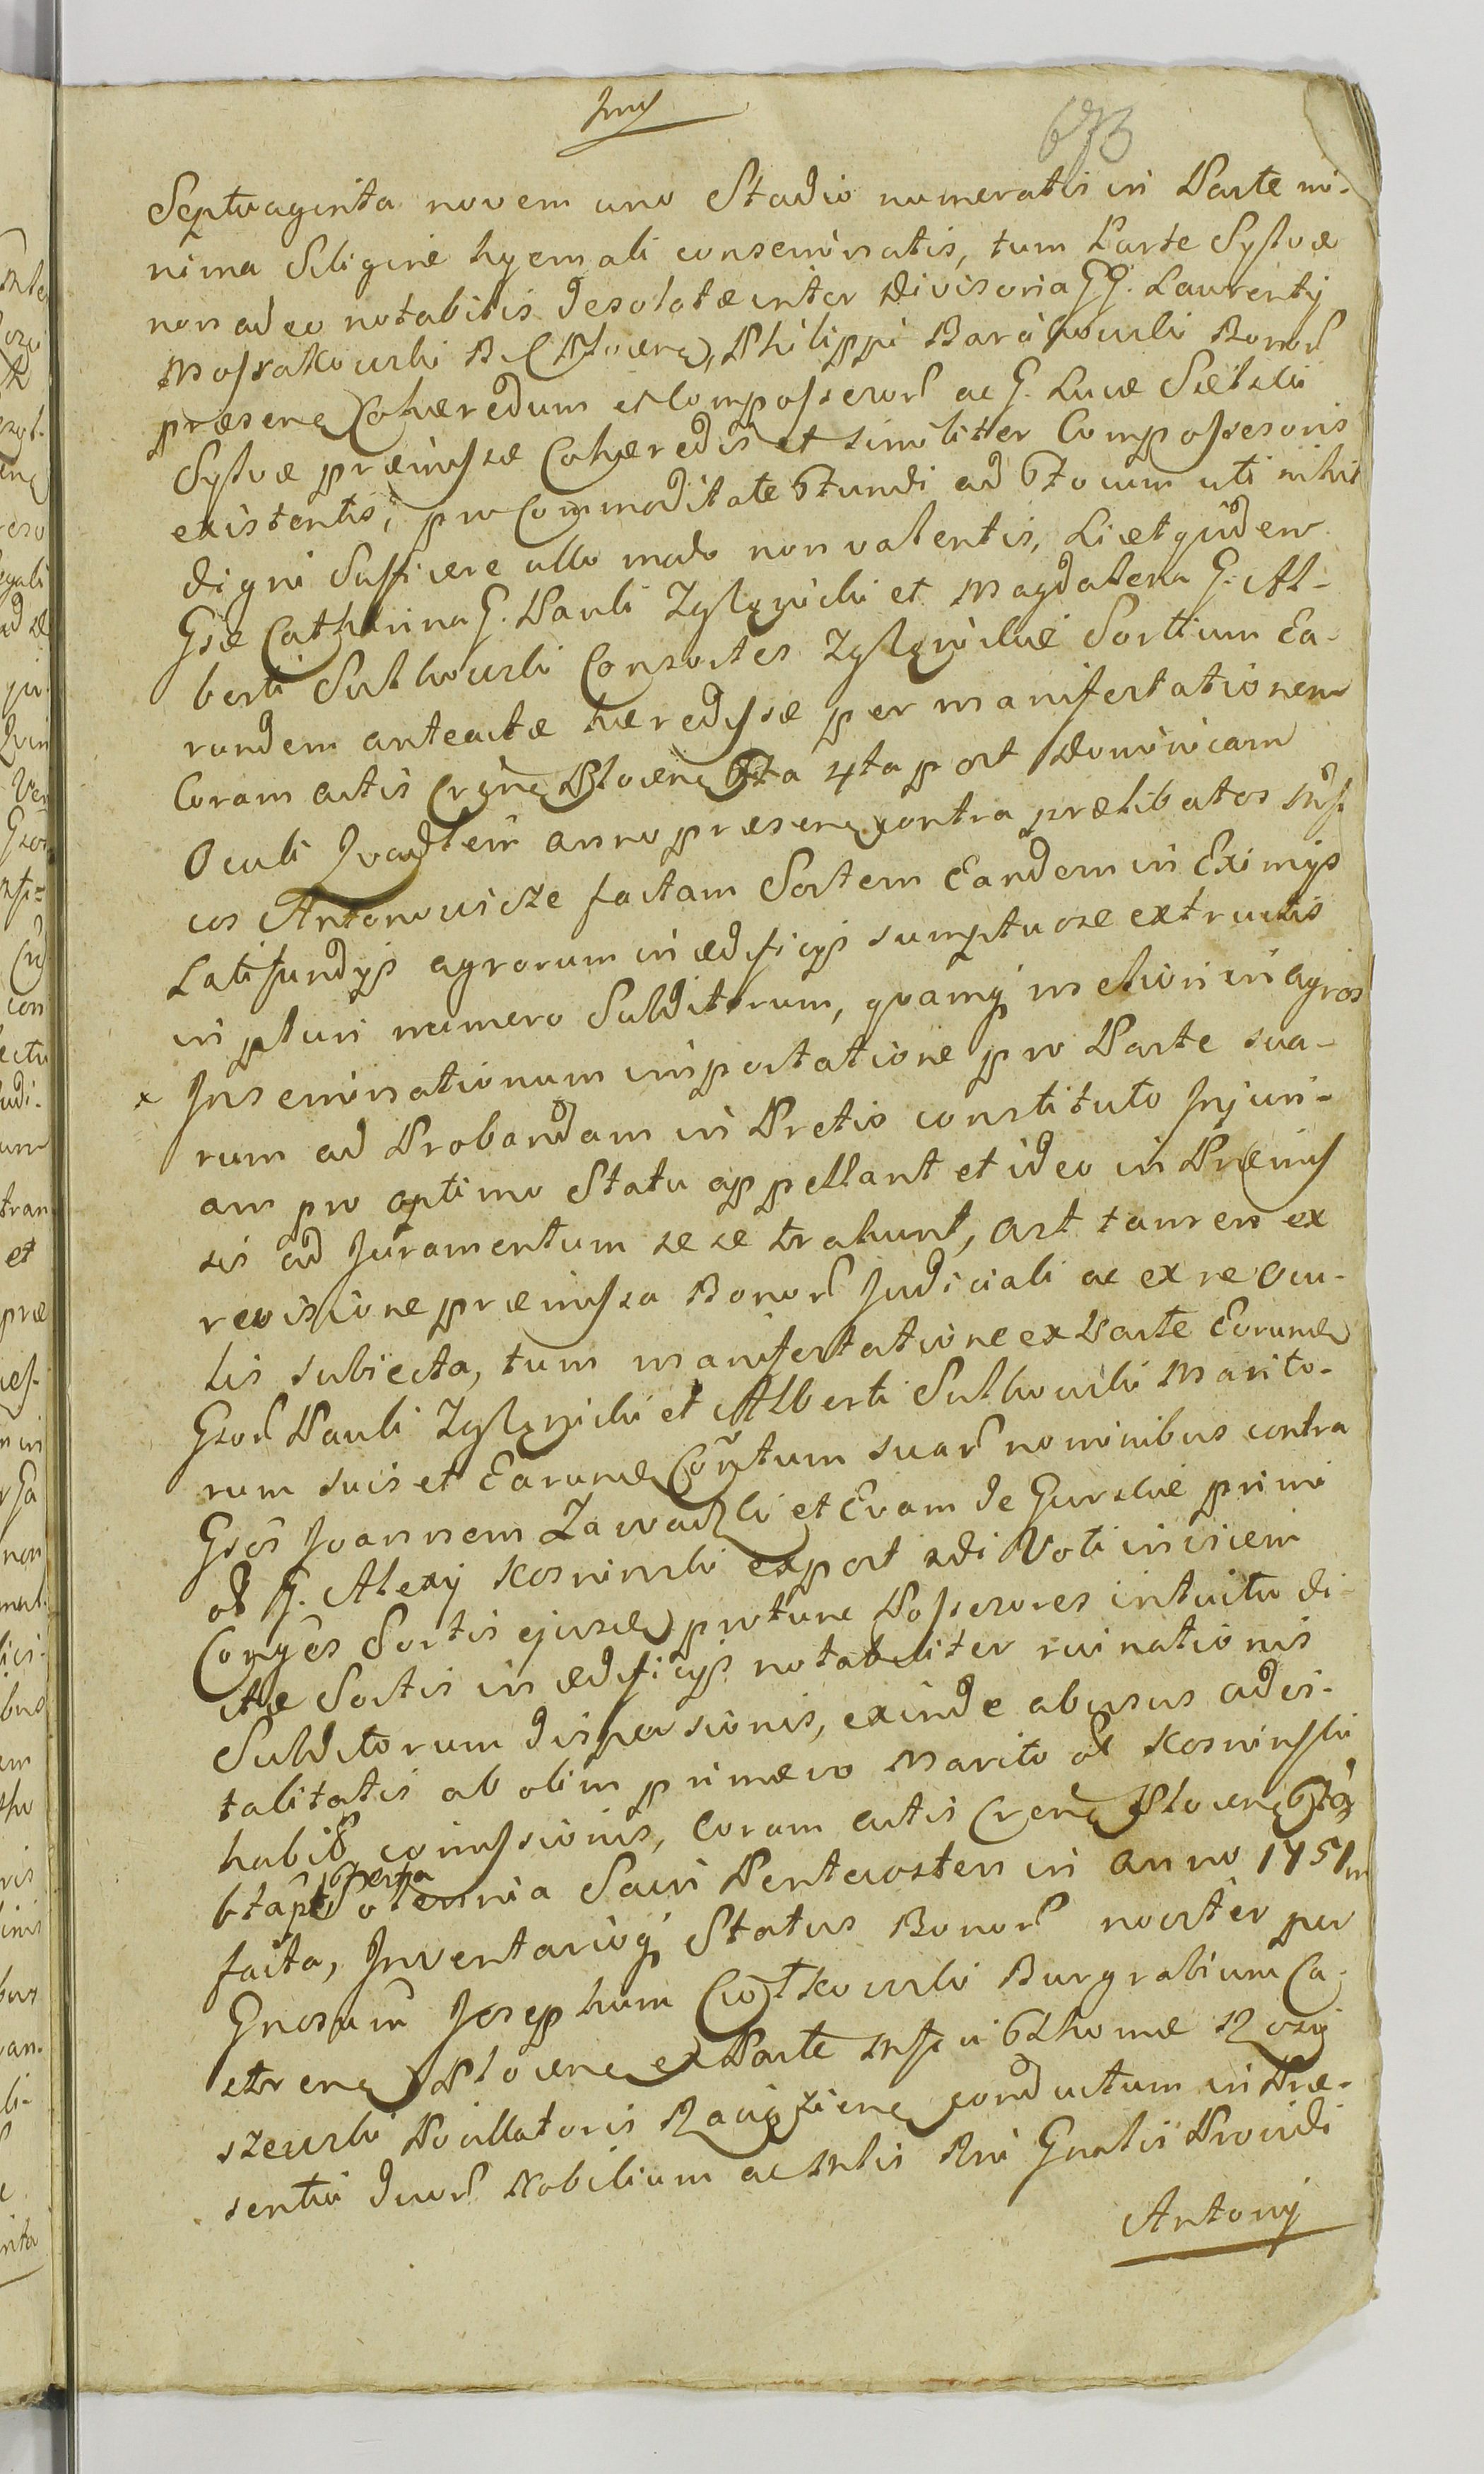 673
Septuaginta novem uno Stadio numeratis in Parte mi-
nima Siligine hyemali conseminatis, tum Parte Sylvæ
non adeo notabilis desolatæ inter Divisoria GG. Laurentÿ
B. Philippi Bono
præsen Cohæredum et Compossesor ac G. Lucæ
Sylvæ præmissæ Cohæredis et similitter Compossesoris
existentis, pro Commoditate Fundi ad Focum uti nihil
digni Sufficere ullo modo non valentis, Licet quidem
Gsæ Catharina G. Pauli Zglenicki et Magdalena G. Al-
berti Sulkowski Consortes Zglenickie Sortium Ea-
rundem anteactæ hæredissæ per manifestationem
Coram actis Plocen 4ta post Dominicam
Oculi anno præsen contra prælibatos
cos Antonowicze factam Sortem Eandem in Eximÿs
Latifundÿs agrorum in ædificÿs sumptuose extructis
in pluri numero Subditorum, quamq meliori in agros
x Inseminationum importatione pro Parte sua-
rum ad Probandam in Pretio constituto Injuri-
am pro optimo Statu appellant et ideo in Præmis
sis ad Juramentum sese trahunt, ast tamen ex
revisione præmissa Bonor Judiciali ac ex re Ocu-
lis subiecta, tum manifestatione ex Parte Eorund
Gsor Pauli Zglenicki et Alberti Sulkowski Marito-
rum suis et Earund suar nominibus contra
Gsos Joannem Zawadzki et Evam de Gurskie primi
ol G. Alexÿ Kosninski expost 2di Voti invicem
Conges Sortis ejusd protunc Possesores intuitu di-
ctæ Sortis in ædificÿs notabiliter ruinationis
Subditorum dispersionis, exinde abusus advi-
talitatis ab olim primævo Marito ol Kosninski
habit comissionis, Coram actis Plocen
Festa Solennia Sacri Pentecosten in anno 1751
facta, Inventarioq Status Bonor noviter per
Gnosum Josephum Burgrabium Ca-
stren Plocen ex Parte Thomæ Rosci
szewski Pocillatoris Raciązien conductum in Præ-
sentia duor Nobilium ac Mlis Rni Gnalis Providi
Antonÿ